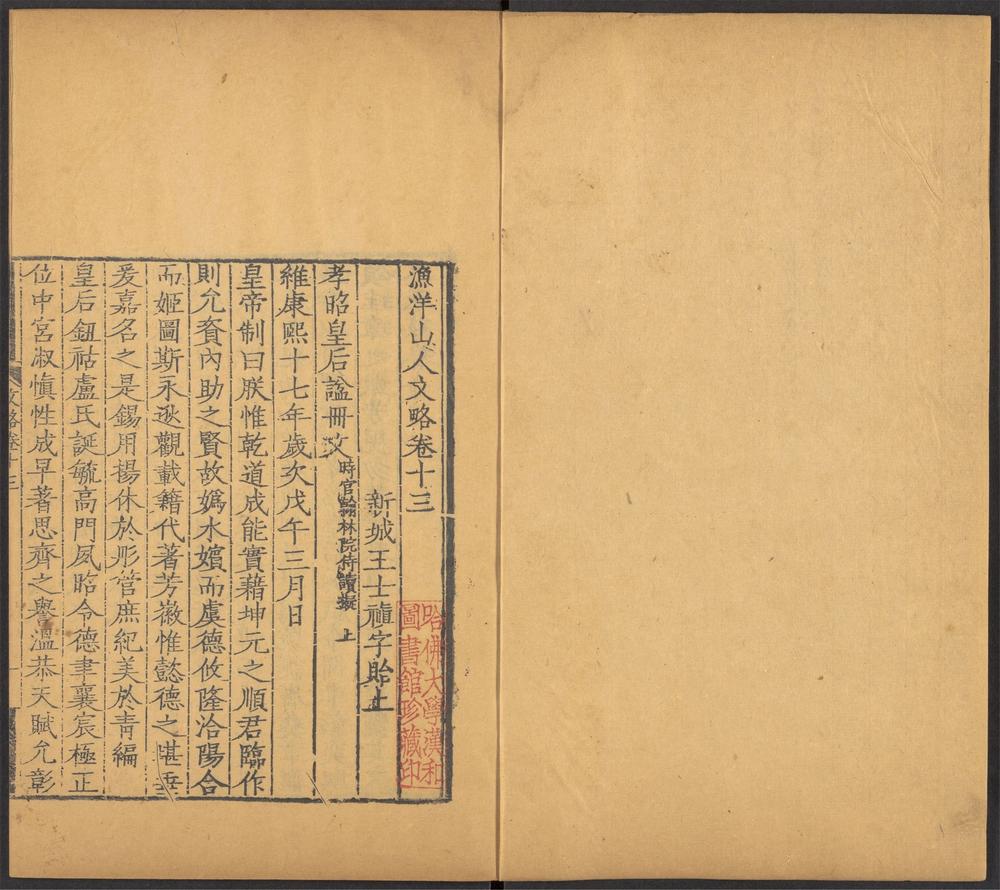 漁洋山人文略卷十三
新城王士禛字貽上
孝昭皇后諡冊文時官翰林院侍讀擬上
維康熙十七年歲次戊午三月日
皇帝制曰朕惟乾道成能實藉坤元之順君臨作
則允賚內助之賢故媯水嬪而虞德攸隆洽陽合
而姬圖斯永逖觀載籍代著芳徽惟懿德之堪垂
爰嘉名之是錫用揚休於彤管庶紀美於青編
皇后鈕祜盧氏誕毓高門夙昭令德聿襄宸極正
位中宮淑慎性成早著思齊之譽溫恭天賦允彰
文略卷十三
哈佛大學漢和
圖書館珍藏印